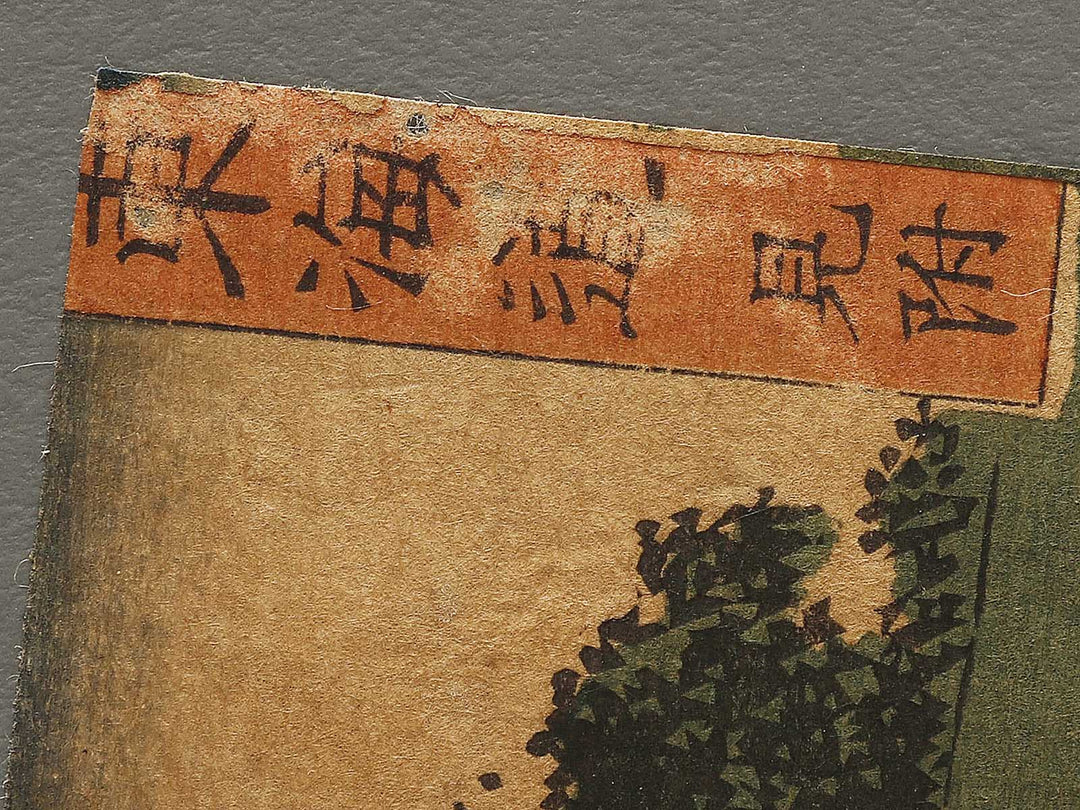 東海道見附